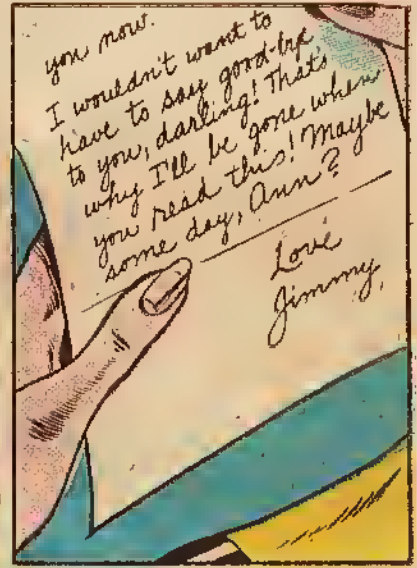 you now.
I wouldn't want to
have to say good-bye
to you, darling! That's
why I'll be gone when
you read this! Maybe
some day, Ann?
Love
Jimmy,